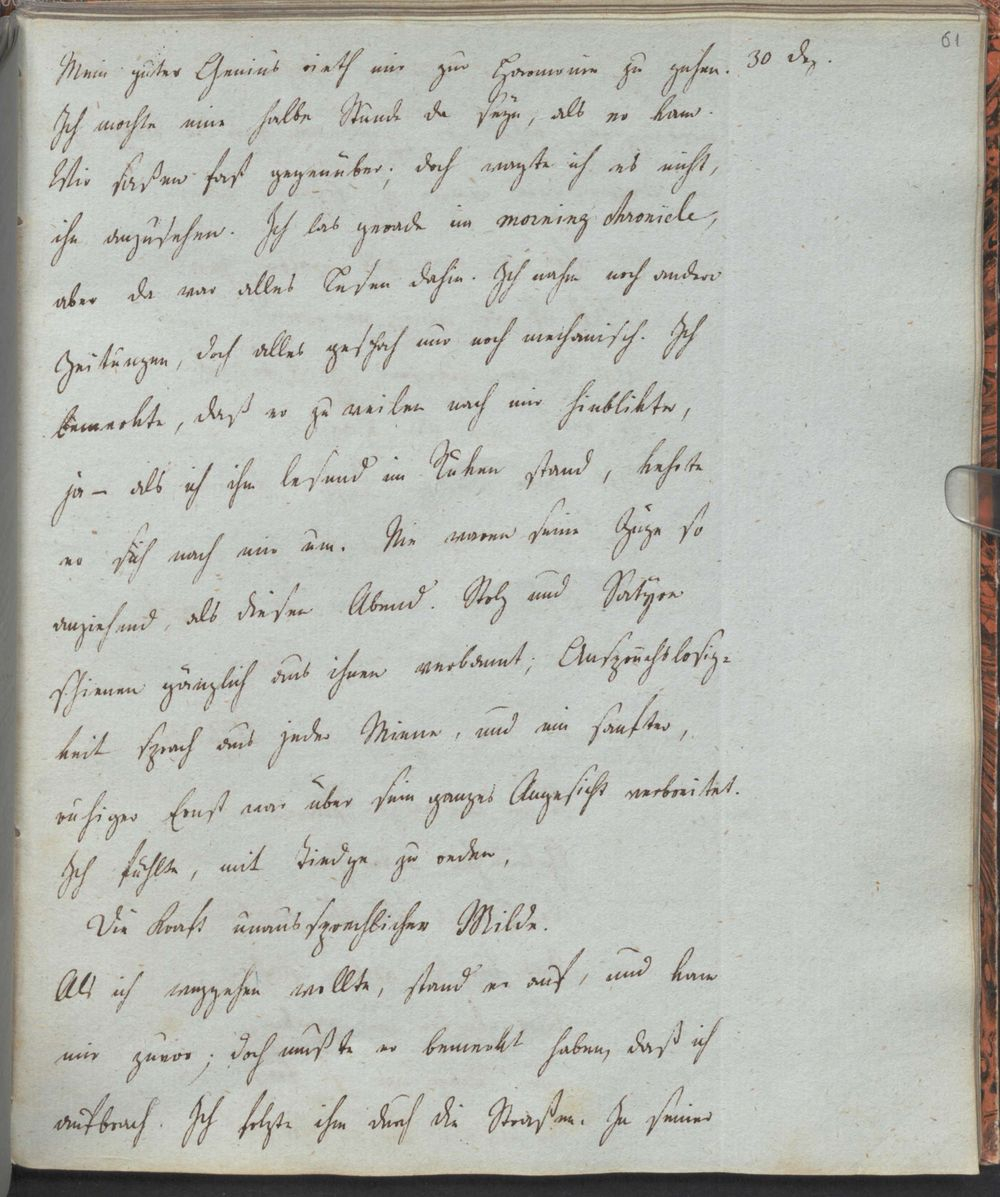 61
Mein guter Genius rieth mir zur Harmonie zu gehen. 30 Dez.
Ich mochte eine halbe Stunde da seyn, als er kam.
Wir saßen fast gegenüber; doch wagte ich es nicht,
ihn anzusehen. Ich las gerade im morning chronicle,
aber da war alles Lesen dahin. Ich nahm noch andere
Zeitungen, doch alles geschah nur noch mechanisch. Ich
bemerkte, daß er zuweilen nach mir hinblikte,
ja – als ich ihm lesend im Rüken stand, kehrte
er sich nach mir um. Nie waren seine Züge so
anziehend, als diesen Abend. Stolz und Satyre
schienen gänzlich aus ihnen verbannt; Anspruchslosig=
keit sprach aus jeder Miene, und ein sanfter,
ruhiger Ernst war über sein ganzes Angesicht verbreitet.
Ich fühlte, mit Tiedge zu reden,
Die Kraft unaussprechlicher Milde.
Als ich weggehen wollte, stand er auf, und kam
mir zuvor; doch mußte er bemerkt haben, daß ich
aufbrach. Ich folgte ihm durch die Straßen. In seiner